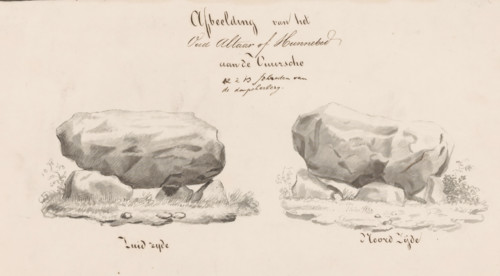 Afbeelding van het
Oud Altaar of Hunnebed
aan de Vuursche
Zuid zijde
Noord Zijde